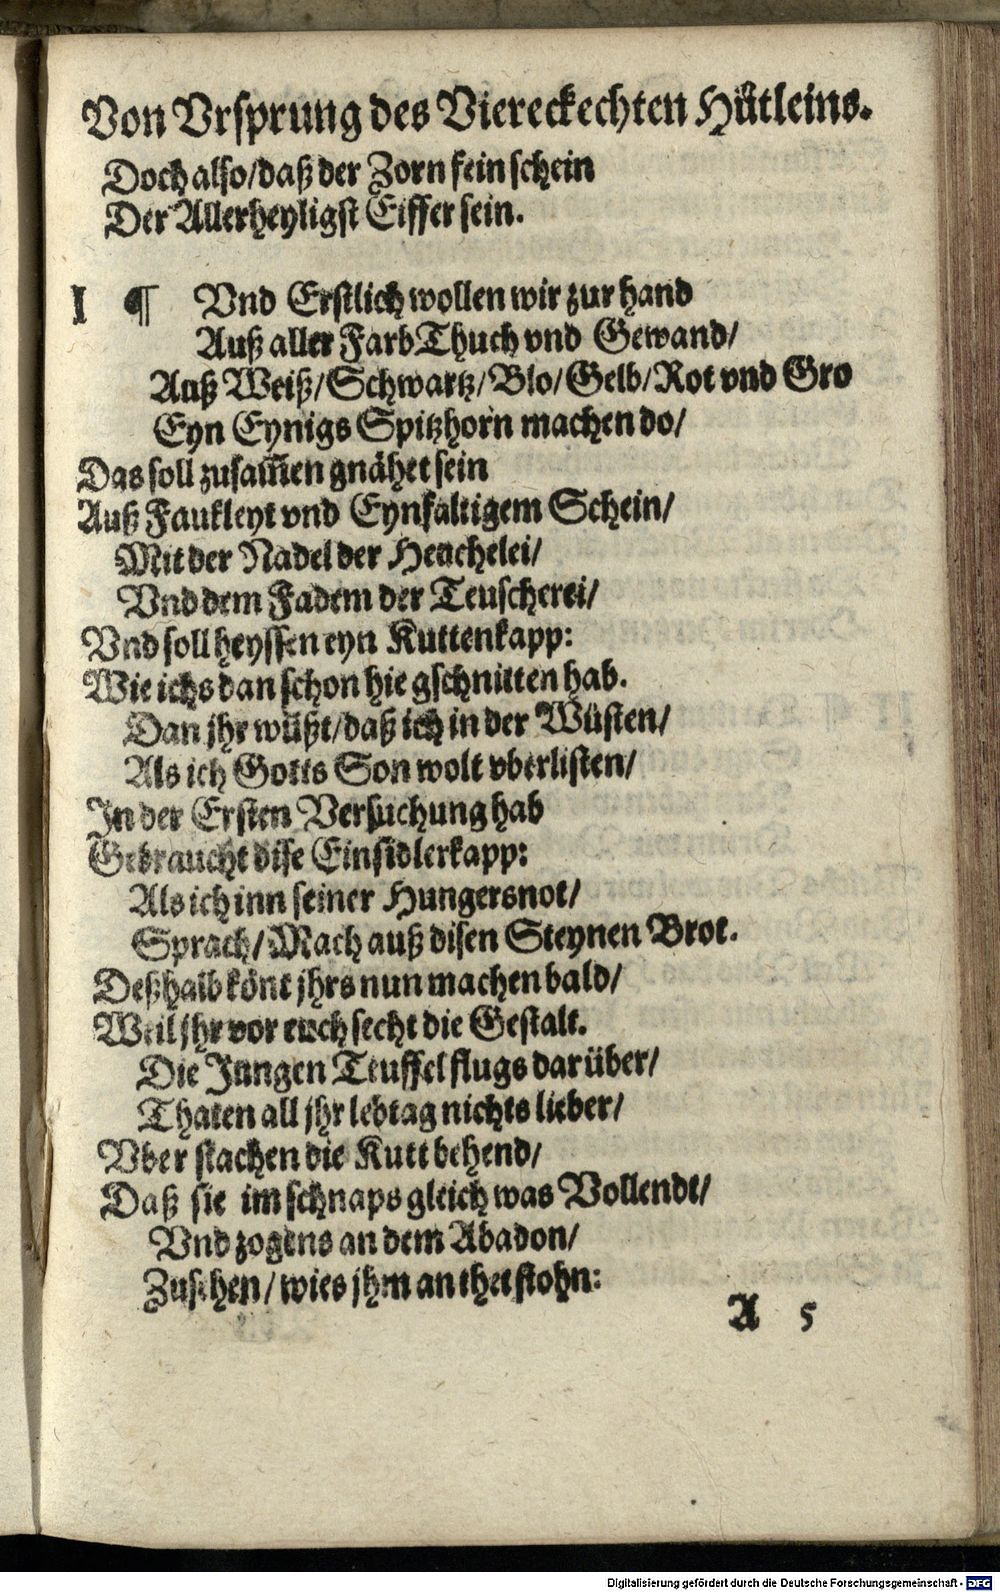 Von Vrsprung des Viereckechten Hütleins.
Doch also/daß der Zorn fein schein
Der Allerheyligst Eiffer sein.
I ¶ Vnd Erstlich wollen wir zur hand
Auß aller Farb Thuch vnd Gewand/
Auß Weiß/Schwartz/Blo/Gelb/Rot vnd Gro
Eyn Eynigs Spitzhorn machen do/
Das soll zusam̃en gnähet sein
Auß Faukleyt vnd Eynfaltigem Schein/
Mit der Nadel der Heuchelei/
Vnd dem Fadem der Teuscherei/
Vnd soll heyssen eyn Kuttenkapp:
Wie ichs dan schon hie gschnitten hab.
Dan jhr wüßt/daß ich in der Wüsten/
Als ich Gotts Son wolt vberlisten/
In der Ersten Versuchung hab
Gebraucht dise Einsidlerkapp:
Als ich inn seiner Hungersnot/
Sprach/Mach auß disen Steynen Brot.
Deßhalb könt jhrs nun machen bald/
Weil jhr vor euch secht die Gestalt.
Die Jungen Teuffel flugs darüber/
Thaten all jhr lebtag nichts lieber/
Vber stachen die Kutt behend/
Daß sie im schnaps gleich was Vollendt/
Vnd zogens an dem Abadon/
Zusehen/wies jhm an thet stohn:
A 5
Digitalisierung gefördert durch die Deutsche Forschungsgemeinschaft - DFG